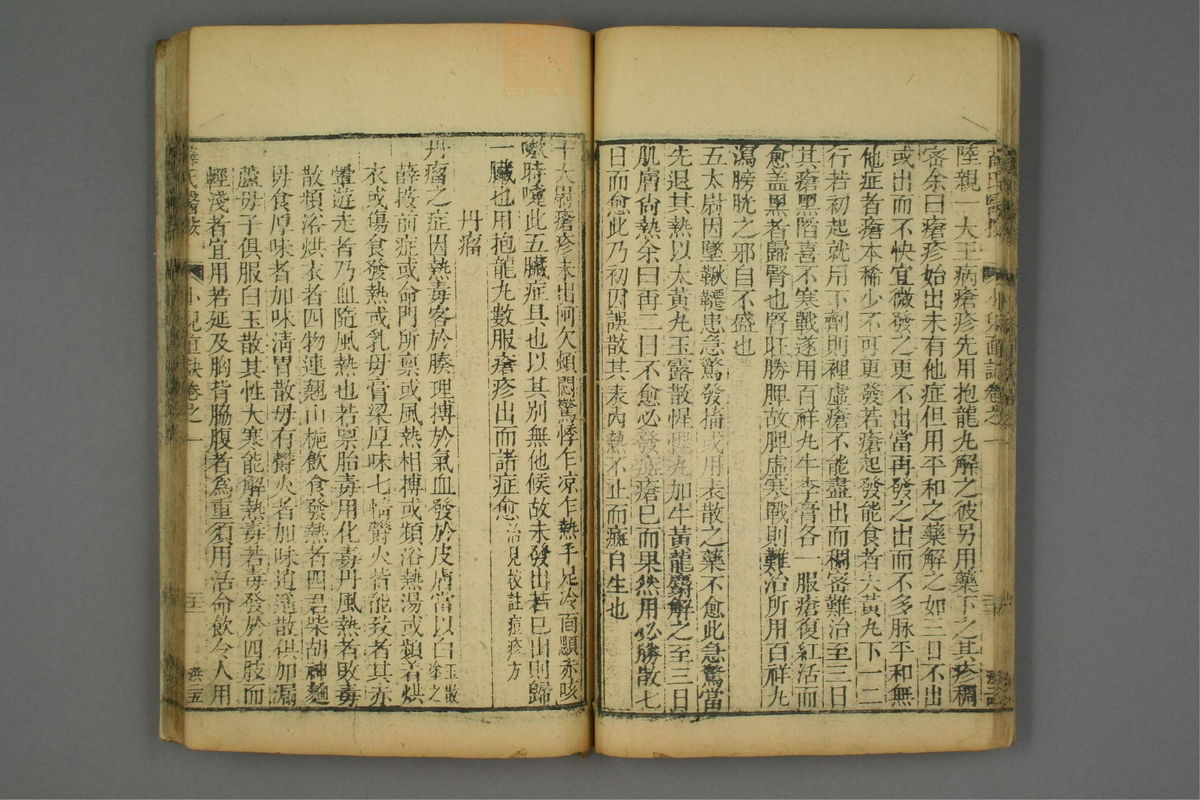 陸親一大王病瘡疹先用抱龍丸解之彼另用藥下之其疹稠
密余曰瘡疹始出未有他症但用平和之藥解之如三日不出
或出而不快宜微發之更不出當再發之出而不多脉平和無
他症者瘡本稀少不可更發若瘡起發能食者大黃丸下一二
行若初起就用下劑則裡虛瘡不能盡出而稠密難治至三日
其瘡黑陷喜不寒戰遂用百祥丸牛李膏各一服瘡復紅活而
愈盖黑者歸腎也腎旺勝脾故脾虛寒戰則難治所用百祥丸
瀉膀胱之邪自不盛也
五太尉因墜鞦韆患急驚發搐或用表散之藥不愈此急驚當
先退其熱以大黃丸玉露散惺惺丸加牛黃龍麝解之至三日
肌膚尙熱余曰再二日不愈必發瘡已而果然用必勝散七
日而愈此乃初因誤散其表內熱不止而自生也
薛氏醫按 小兒直訣卷之一
十大尉瘡疹未出而欠頻悶驚悸乍凉乍熱手足冷面顋赤咳
嗽時嚏此五臟症具也以其別無他候故未發出若已出則歸
一臟也用抱龍丸數服瘡疹出而諸症愈治見校註痘疹方
丹瘤
丹瘤之症因熱毒客於腠理搏於氣血發於皮膚當以白玉散塗之
薛按前症或命門所禀或風熱相搏或頻浴熱湯或頻着烘
衣或傷食發熱或乳母膏梁厚味七情鬱火皆能致者其赤
暈遊走者乃血隨風熱也若禀胎毒用化毒丹風熱者敗毒
散頻浴烘衣者四物連翹山梔飲食發熱者四君柴胡神麯
母食厚味者加味淸胃散母有鬱火者加味逍遥散俱加漏
蘆母子俱服白玉散其性大寒能解熱毒若毒發於四肢而
輕淺者宜用若延及胸背脇腹者爲重須用活命飲令人用
薛氏醫按 小兒直訣卷之一